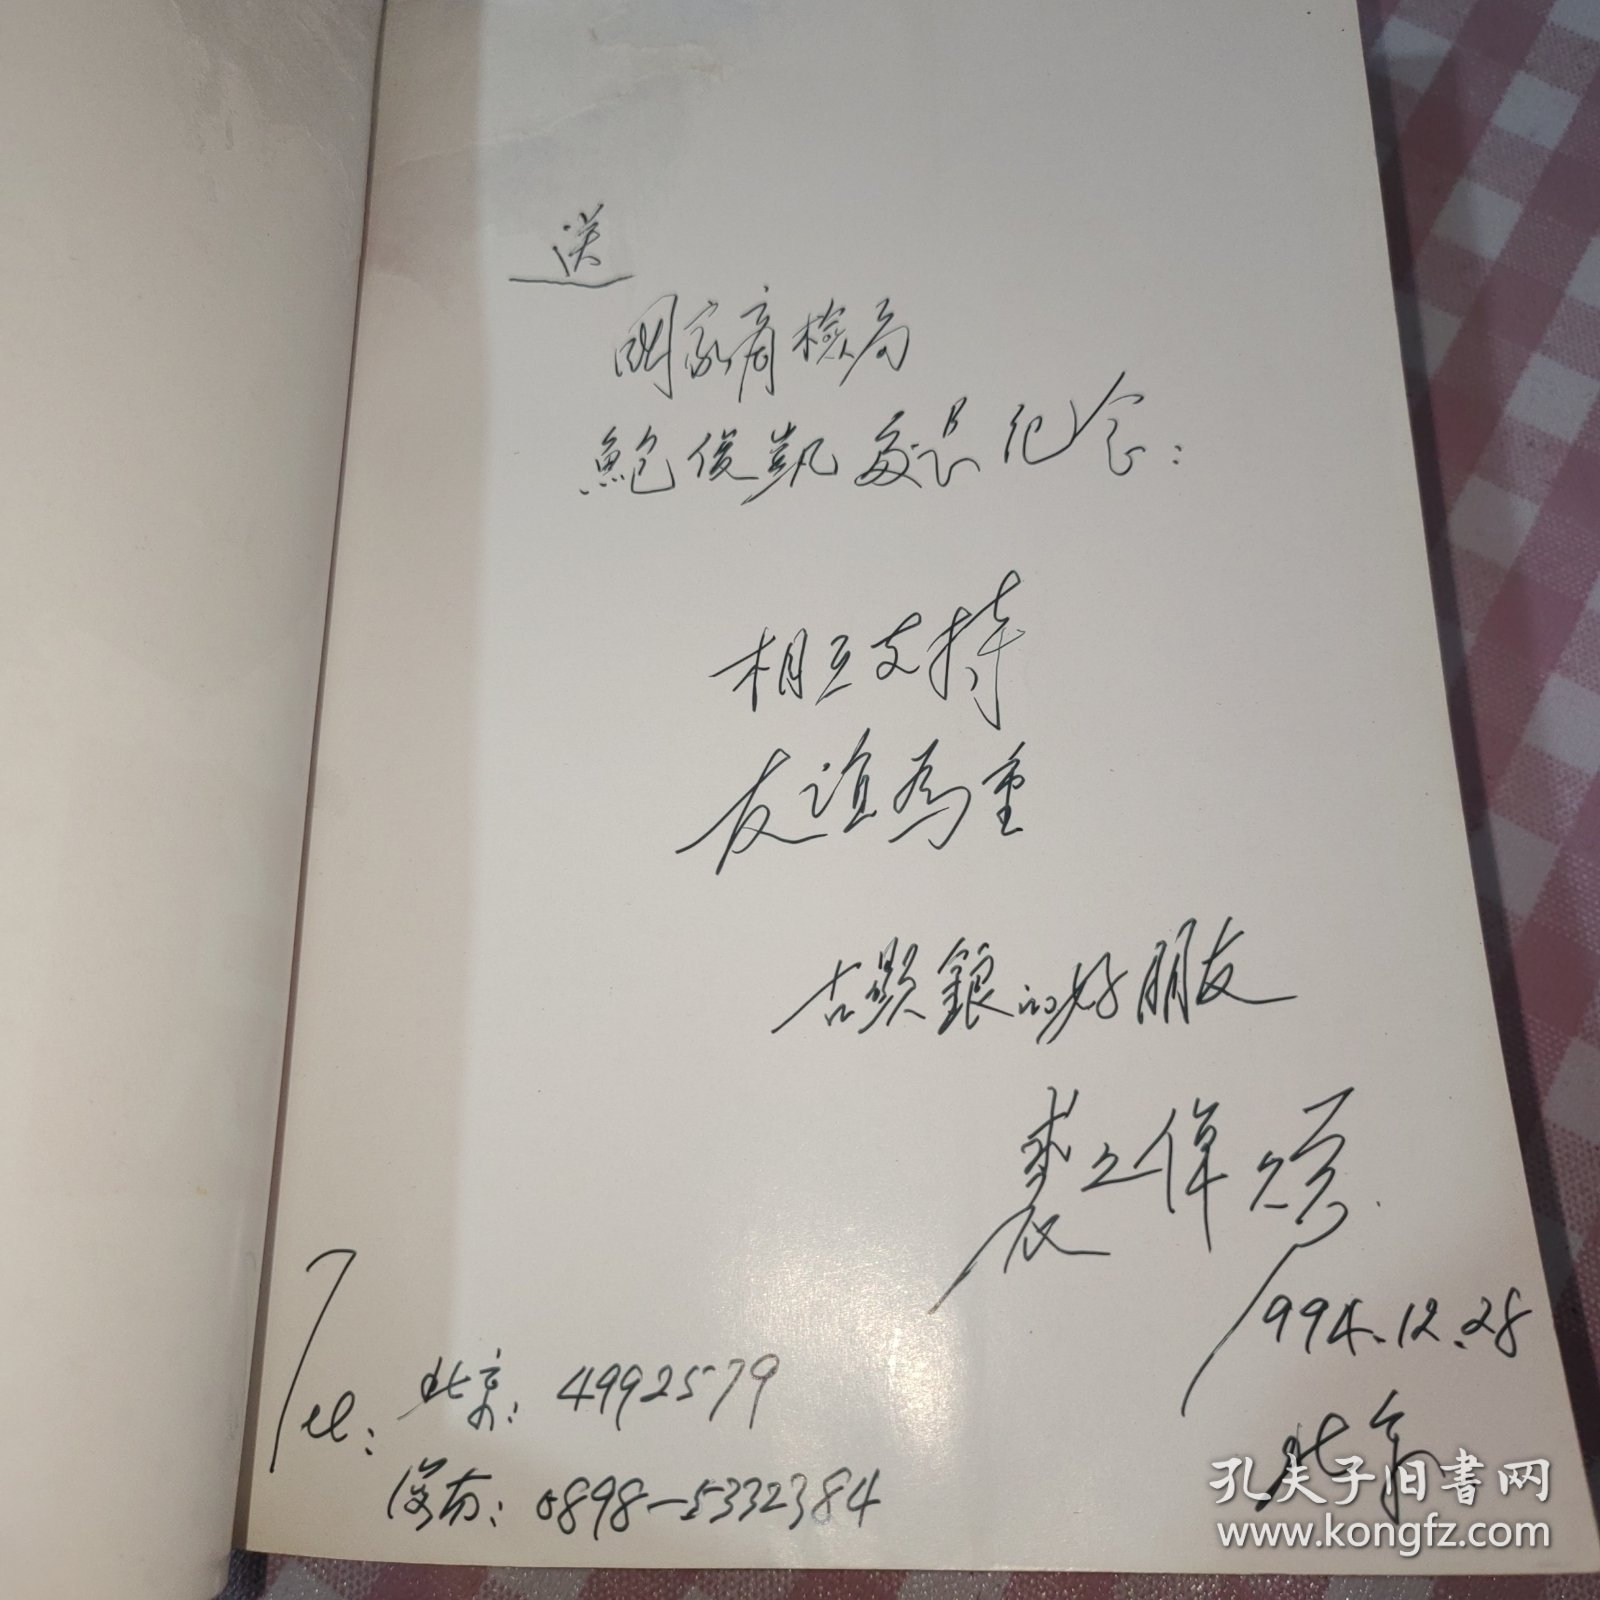 送
国家商检局
鲍俊凯处长纪念:
相互支持
友谊為重
古顯銀的好朋友
裘之倬 颂
1994.12.28
北京
Tel: 北京: 4992579
海南: 0898-5332384
孔夫子旧書网
www.kongfz.com